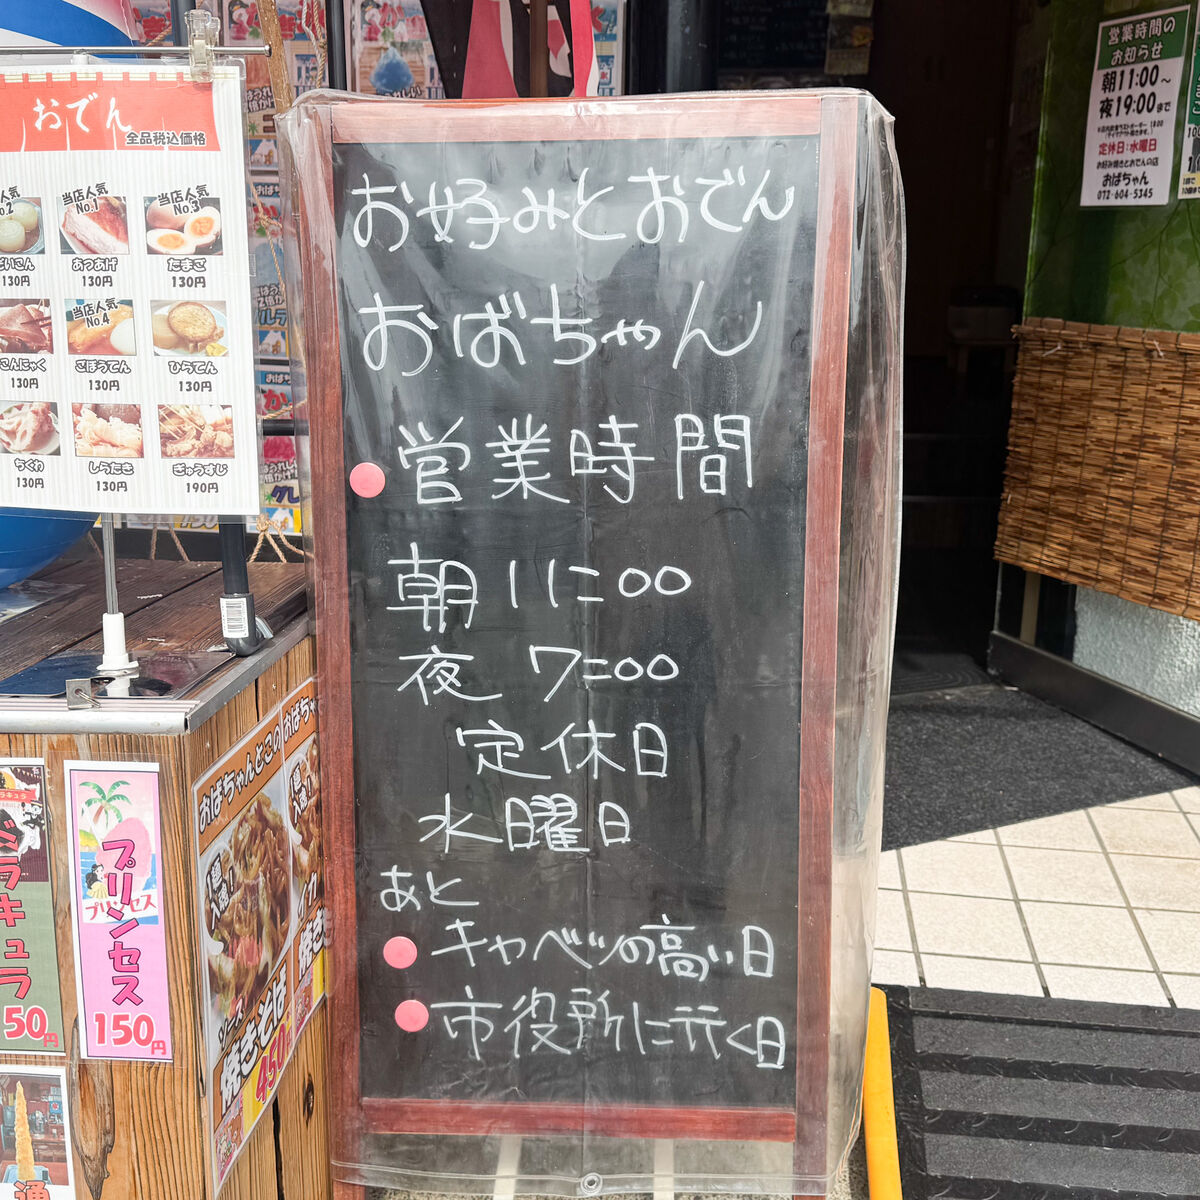 おでん
全品税込価格
当店人気
No.1
当店人気
No.3
あつあげ
130円
たまご
130円
130円
当店人気
No.4
こんにゃく
130円
ごぼうてん
130円
ひらてん
130円
ちくわ
130円
しらたき
130円
ぎゅうすじ
190円
お好みとおでん
おばちゃん
営業時間
朝 11:00
夜 7:00
定休日
水曜日
あと
キャベツの高い日
市役所に行く日
営業時間の
お知らせ
朝11:00〜
夜19:00まで
定休日:水曜日
お好み焼きとおでんの店
おばちゃん
072-604-5345
ドラキュラ
50円
プリンセス
プリンセス
150円
おばちゃんとこの
ソース
焼きそば
450